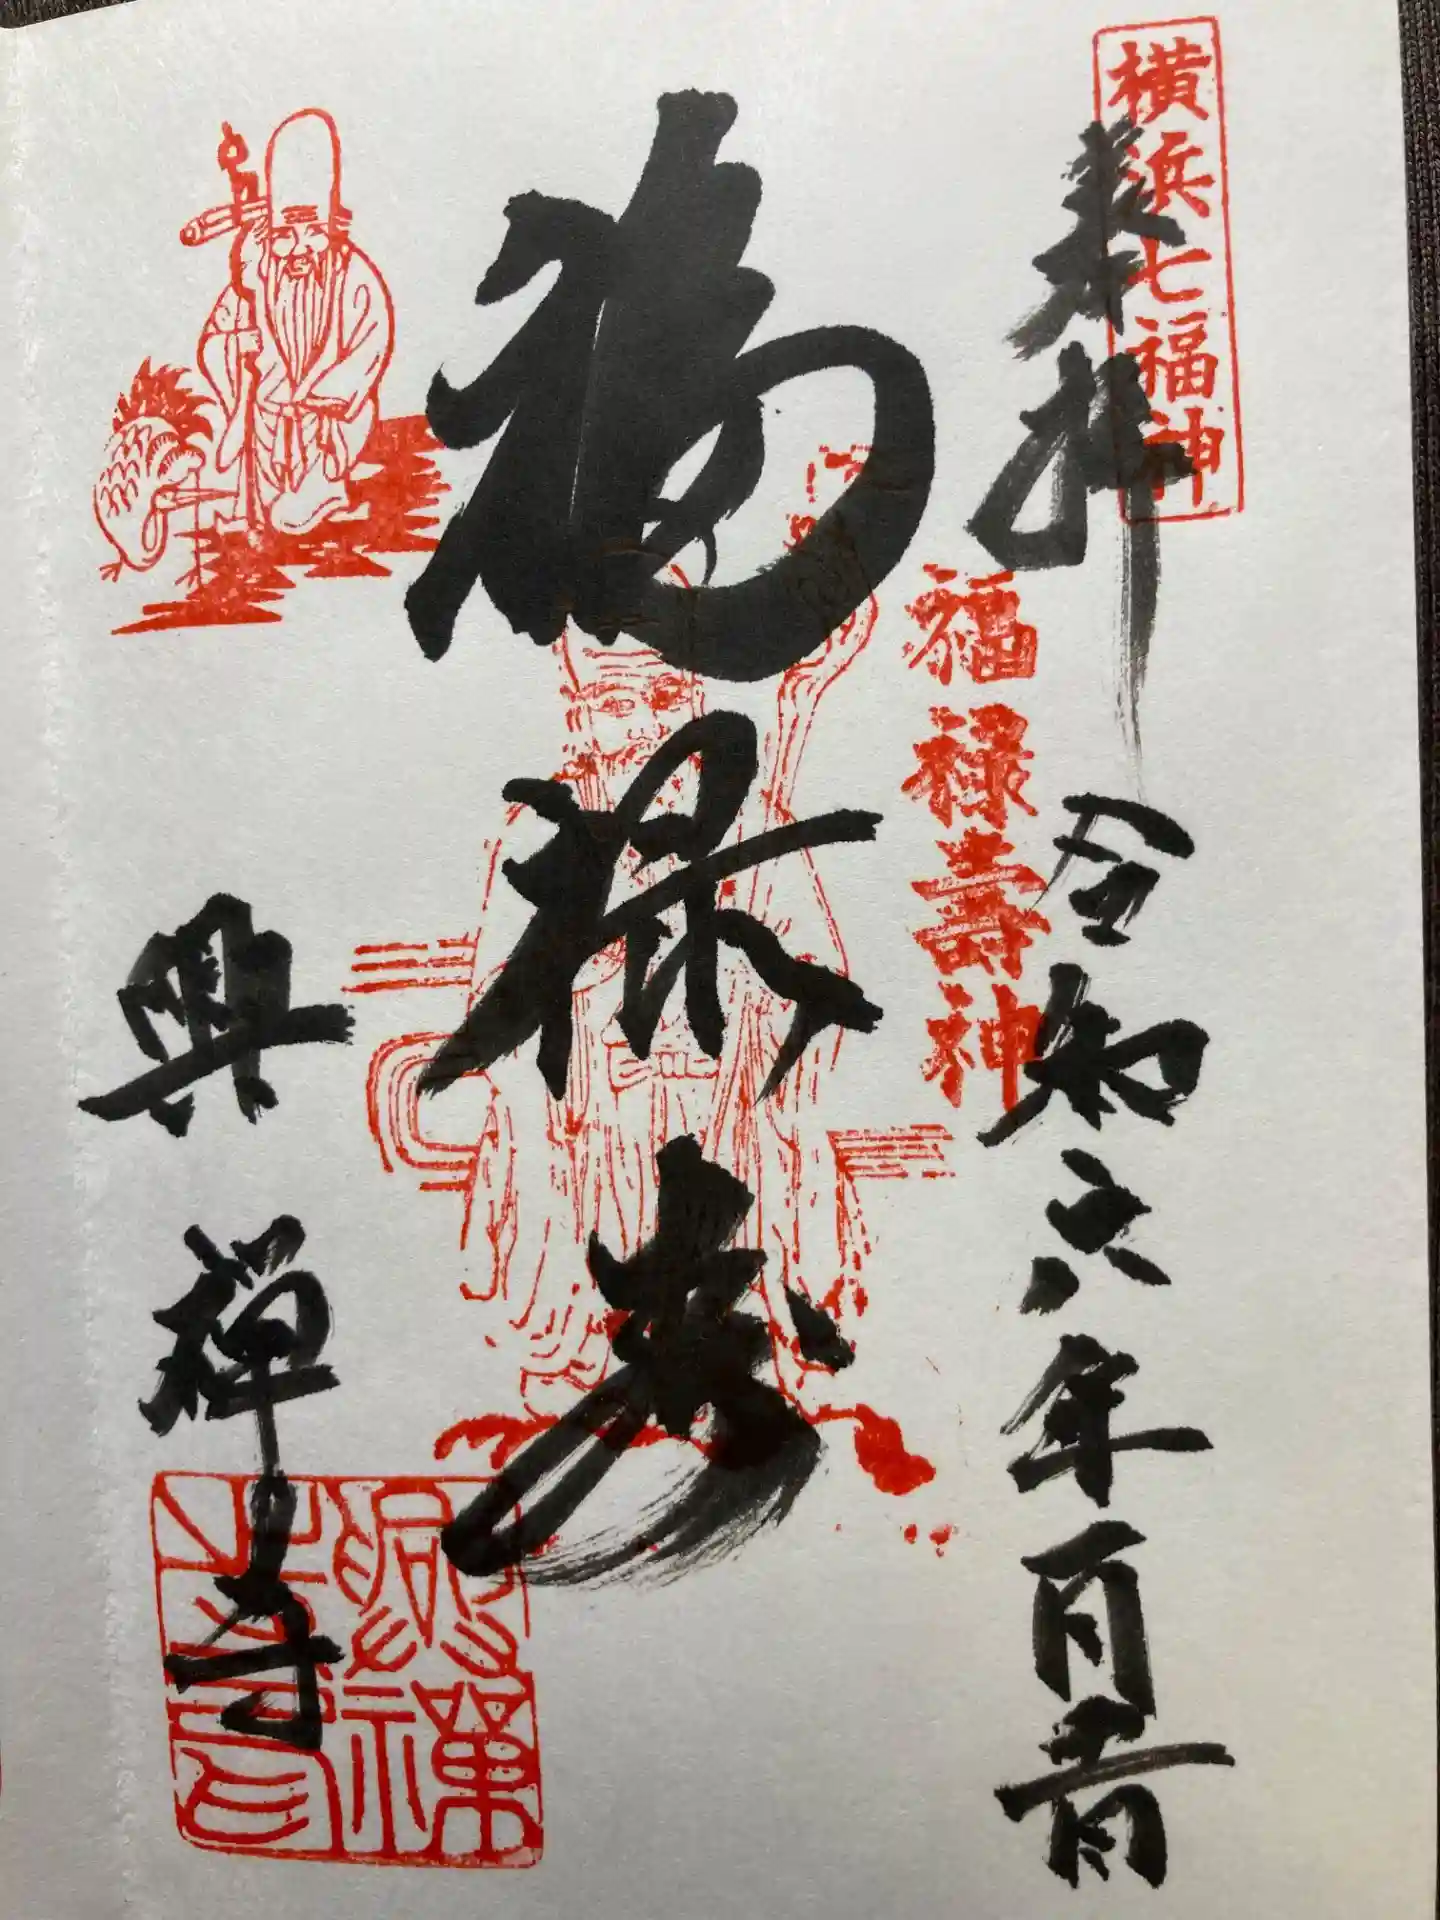 横浜七福神
奉拝
令和六年一月二日
福禄壽神
福禄寿
興禅寺